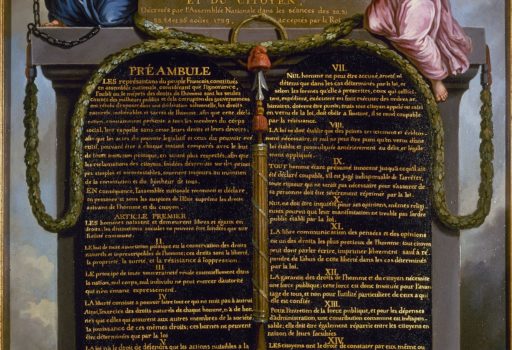 ET DU CITOYEN,
Décretés par l'Assemblée Nationale dans les séances des 20, 21
23, 24 et 26 août 1789, acceptés par le Roi
PRÉAMBULE
LES représentans du peuple François, constitués
en assemblée nationale, considérant que l'ignorance,
l'oubli ou le mépris des droits de l'homme sont les seules
causes des malheurs publics et de la corruption des gouvernemens
ont résolu d'exposer dans une déclaration solemnelle, les droits
naturels, inaliénables et sacrés de l'homme; afin que cette décla-
ration, constamment présente à tous les membres du corps
social, leur rappelle sans cesse leurs droits et leurs devoirs;
afin que les actes du pouvoir législatif et ceux du pouvoir exé-
cutif, pouvant être à chaque instant comparés avec le but
de toute institution politique, en soient plus respectés; afin que
les réclamations des citoyens, fondées désormais sur des prin-
cipes simples et incontestables, tournent toujours au maintien
de la constitution et du bonheur de tous.
EN conséquence, l'assemblée nationale reconnoit et déclare
en présence et sous les auspices de l'Etre suprême les droits
suivans de l'homme et du citoyen.
ARTICLE PREMIER
LES hommes naissent et demeurent libres et égaux en
droits; les distinctions sociales ne peuvent être fondées que sur
l'utilité commune.
II.
LE but de toute association politique est la conservation des droits
naturels et imprescriptibles de l'homme; ces droits sont la liberté,
la propriété, la sureté, et la résistance à l'oppression.
III.
LE principe de toute souveraineté réside essentiellement dans
la nation, nul corps, nul individu ne peut exercer d'autorité
qui n'en émane expressément.
IV.
LA liberté consiste à pouvoir faire tout ce qui ne nuit pas à autrui
Ainsi, l'exercice des droits naturels de chaque homme, n'a de bor-
nes que celles qui assurent aux autres membres de la société
la jouissance de ces mêmes droits; ces bornes ne peuvent
être déterminées que par la loi
V.
LA loi n'a le droit de défendre que les actions nuisibles à la
VII.
NUL homme ne peut être accusé, arreté ni
détenu que dans les cas déterminés par la loi, et
selon les formes qu'elle a prescrites, ceux qui sollici-
tent, expédient, exécutent ou font exécuter des ordres ar-
bitraires, doivent être punis; mais tout citoyen appelé ou saisi
en vertu de la loi, doit obéir à l'instant, il se rend coupable
par la résistance.
VIII.
LA loi ne doit établir que des peines strictement et évidem-
ment nécessaires, et nul ne peut être puni qu'en vertu d'une loi
établie et promulguée antérieurement au délit, et légale-
ment appliquée.
IX.
TOUT homme étant présumé innocent jusqu'à ce qu'il ait
été déclaré coupable, s'il est jugé indispensable de l'arrêter,
toute rigueur qui ne serait pas nécessaire pour s'assurer de
sa personne doit être sévèrement réprimée par la loi.
X.
NUL ne doit être inquiété pour ses opinions, mêmes reli-
gieuses pourvu que leur manifestation ne trouble pas l'ordre
public établi par la loi.
XI.
LA libre communication des pensées et des opinions
est un des droits les plus précieux de l'homme; tout citoyen
peut donc parler, écrire, imprimer librement, sauf à ré-
pondre de l'abus de cette liberté dans les cas déterminés
par la loi.
XII.
LA garantie des droits de l'homme et du citoyen nécessite
une force publique; cette force est donc instituée pour l'avan-
tage de tous, et non pour l'utilité particulière de ceux à qui
elle est confiée
XIII.
POUR l'entretien de la force publique, et pour les dépenses
d'administration, une contribution commune est indispen-
sable; elle doit être également répartie entre les citoyens en
raison de leurs facultées
XIV.
LES citoyens ont le droit de constater par eux même ou